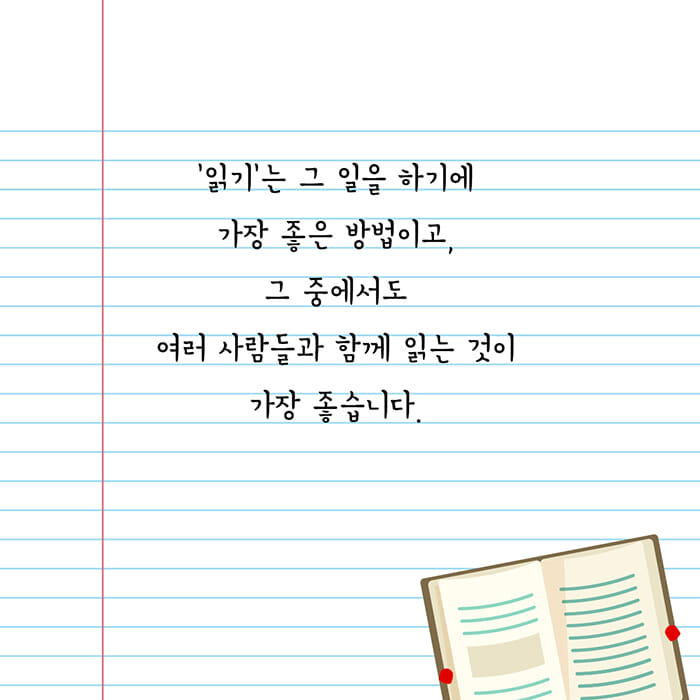 '읽기'는 그 일을 하기에
가장 좋은 방법이고,
그 중에서도
여러 사람들과 함께 읽는 것이
가장 좋습니다.